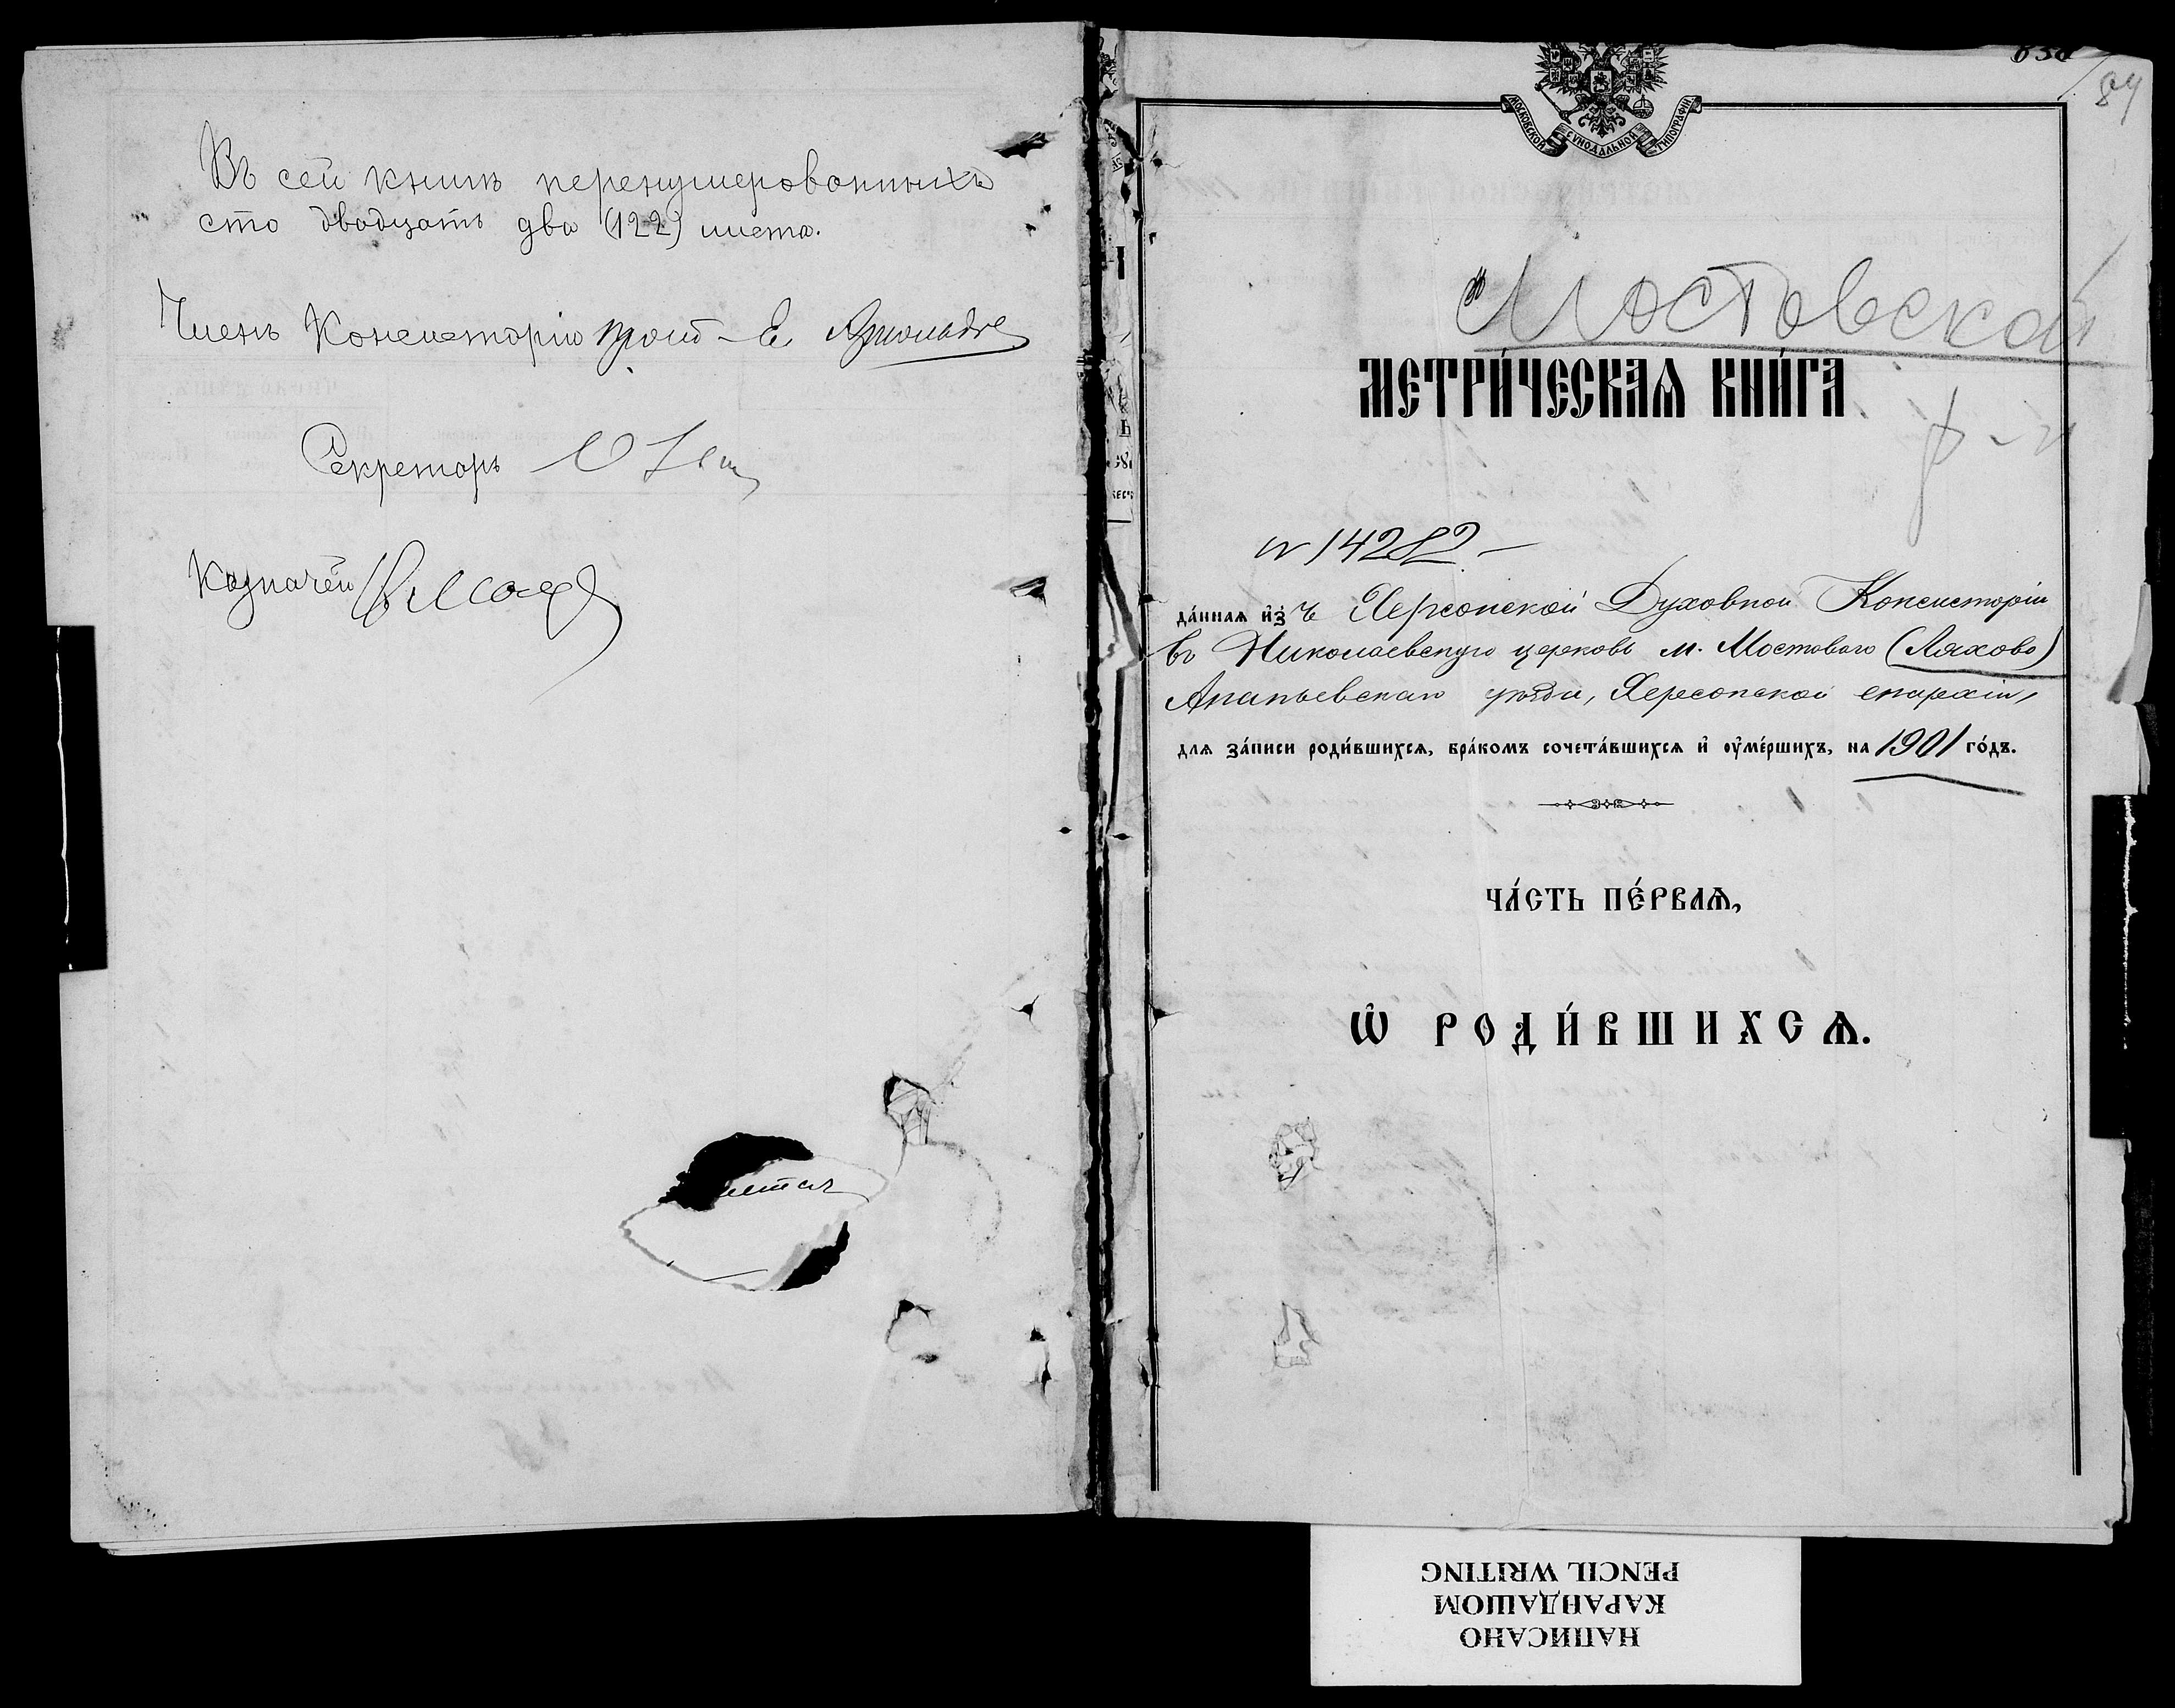 Въ сей книгѣ перенумерованныхъ
сто двадцать два (122) листа.
Членъ Консисторіи прот. Е. Арнольдъ
Секретарь
Казначей
МОСКОВСКОЙ СѴНОДАЛЬНОЙ ТИПОГРАФІИ
84
Мостовской
р-н
МЕТРИ́ЧЕСКАѦ КНИ́ГА
N 14282.
да́ннаѧ и҆зъ Херсонской Духовной Консисторіи
въ Николаевскую церковь м. Мостоваго (Ляхово)
Ананьевскаго уѣзда, Херсонской епархіи,
длѧ за́писи роди́вшихсѧ, бра́комъ сочета́вшихсѧ и҆ оу҆ме́ршихъ, на 1901 го́дъ.
ЧА́СТЬ ПЕ́РВАѦ,
Ѡ҆ РОДИ́ВШИХСѦ.
НАПИСАНО
КАРАНДАШОМ
PENCIL WRITING